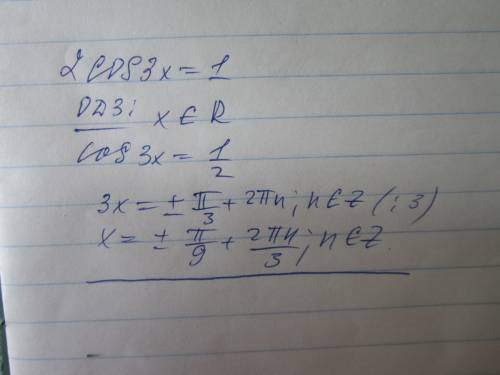 2cos3x = 1
ОДЗ: x ∈ R
cos 3x = 1/2
3x = ± π/3 + 2πn; n ∈ Z (:3)
x = ± π/9 + 2πn/3; n ∈ Z